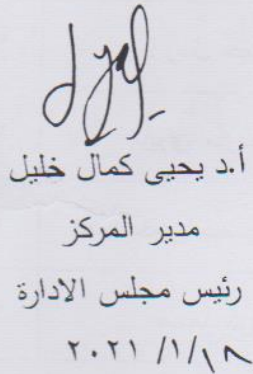 أ.د يحيى كمال خليل
مدير المركز
رئيس مجلس الادارة
٢٠٢١ /١/١٨